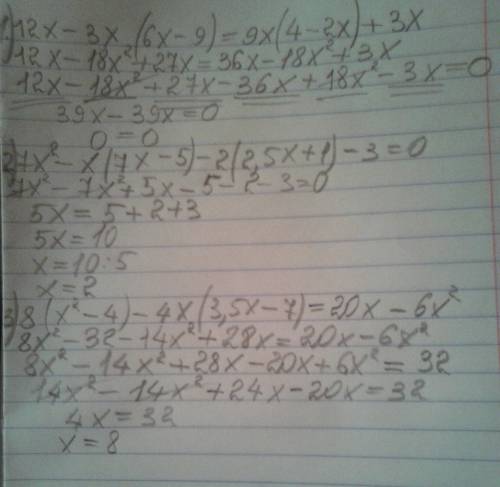 1) 12x - 3x (6x - 9) = 9x(4 - 2x) + 3x
12x - 18x² + 27x = 36x - 18x² + 3x
12x - 18x² + 27x - 36x + 18x² - 3x = 0
39x - 39x = 0
0 = 0
2) 7x² - x(7x - 5) - 2(2,5x + 1) - 3 = 0
7x² - 7x² + 5x - 5 - 2 - 3 = 0
5x = 5 + 2 + 3
5x = 10
x = 10 : 5
x = 2
3) 8(x² - 4) - 4x(3,5x - 7) = 20x - 6x²
8x² - 32 - 14x² + 28x = 20x - 6x²
8x² - 14x² + 28x - 20x + 6x² = 32
14x² - 14x² + 24x - 20x = 32
4x = 32
x = 8